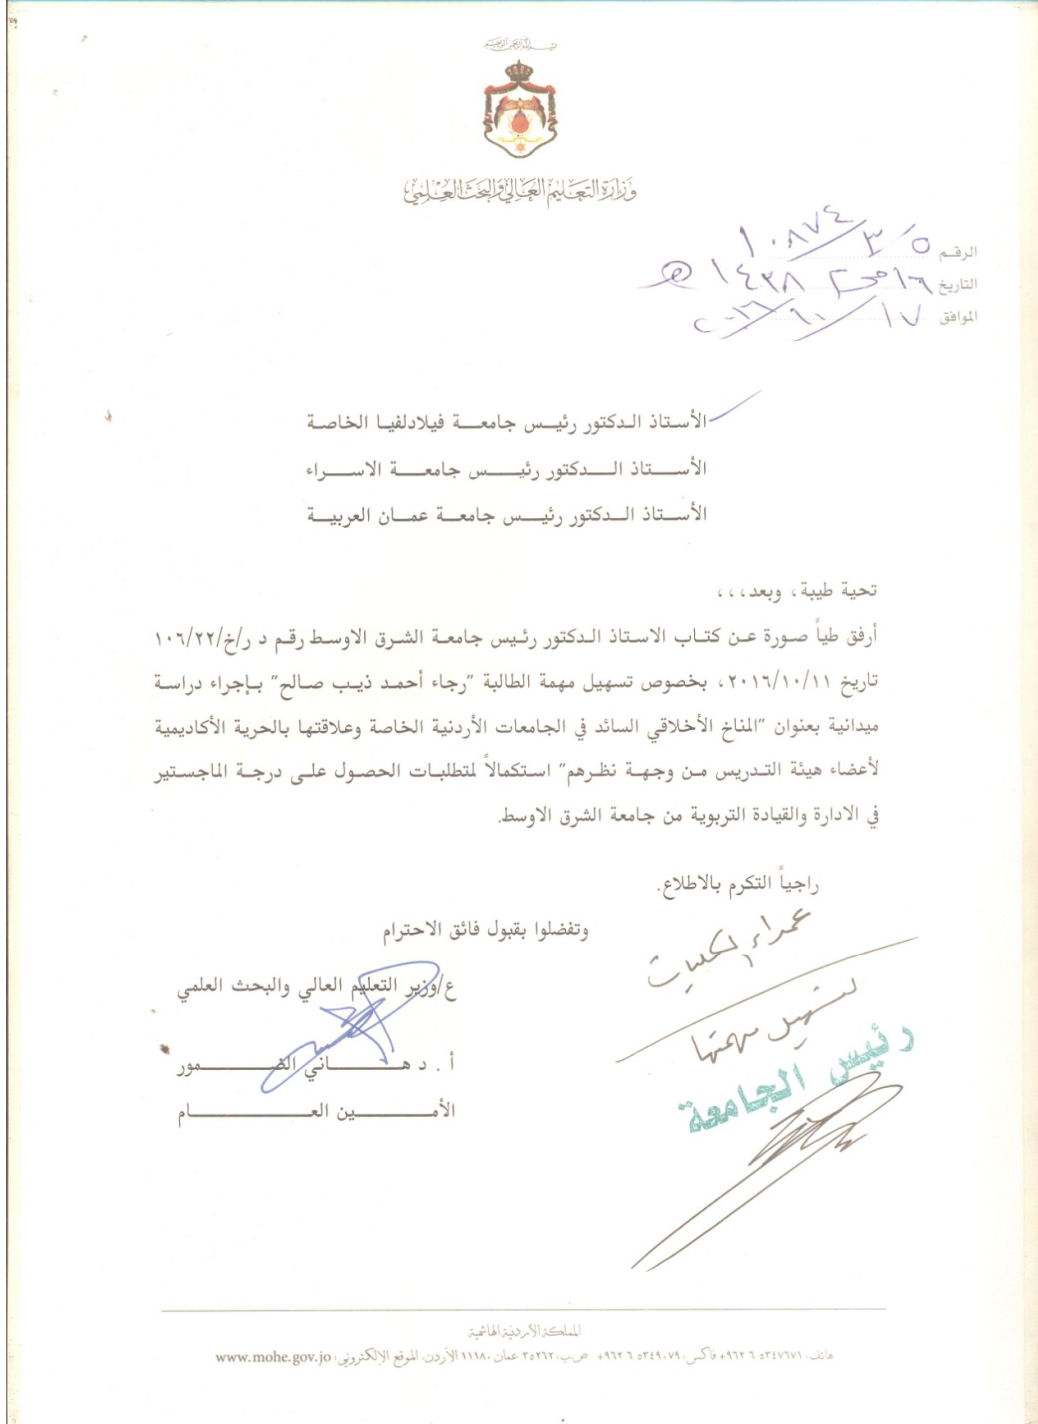 بسم الله الرحمن الرحيم
وزارة التعليم العالي والبحث العلمي
الرقم ٥/٣/١٠٨٧٤
التاريخ ١٦ محرم ١٤٣٨ هـ
الموافق ١٧/١٠/٢٠١٦
الأستاذ الدكتور رئيس جامعة فيلادلفيا الخاصة
الأستاذ الدكتور رئيس جامعة الاسراء
الأستاذ الدكتور رئيس جامعة عمان العربية
تحية طيبة، وبعد،،،
أرفق طياً صورة عن كتاب الاستاذ الدكتور رئيس جامعة الشرق الاوسط رقم د ر/خ/١٠٦/٢٢
تاريخ ٢٠١٦/١٠/١١، بخصوص تسهيل مهمة الطالبة "رجاء أحمد ذيب صالح" بإجراء دراسة
ميدانية بعنوان "المناخ الأخلاقي السائد في الجامعات الأردنية الخاصة وعلاقتها بالحرية الأكاديمية
لأعضاء هيئة التدريس من وجهة نظرهم" استكمالاً لمتطلبات الحصول على درجة الماجستير
في الادارة والقيادة التربوية من جامعة الشرق الاوسط.
راجياً التكرم بالاطلاع.
وتفضلوا بقبول فائق الاحترام
ع/وزير التعليم العالي والبحث العلمي
أ . د هاني الضمور
الأمين العام
عمداء الكليات
لتسهيل مهمتها
رئيس الجامعة
المملكة الأردنية الهاشمية
هاتف: ٥٣٤٧٦٧١ ٦ ٩٦٢+ فاكس: ٥٣٤٩٠٧٩ ٦ ٩٦٢+ ص.ب: ٣٥٢٦٢ عمان ١١١٨٠ الأردن. الموقع الإلكتروني: www.mohe.gov.jo